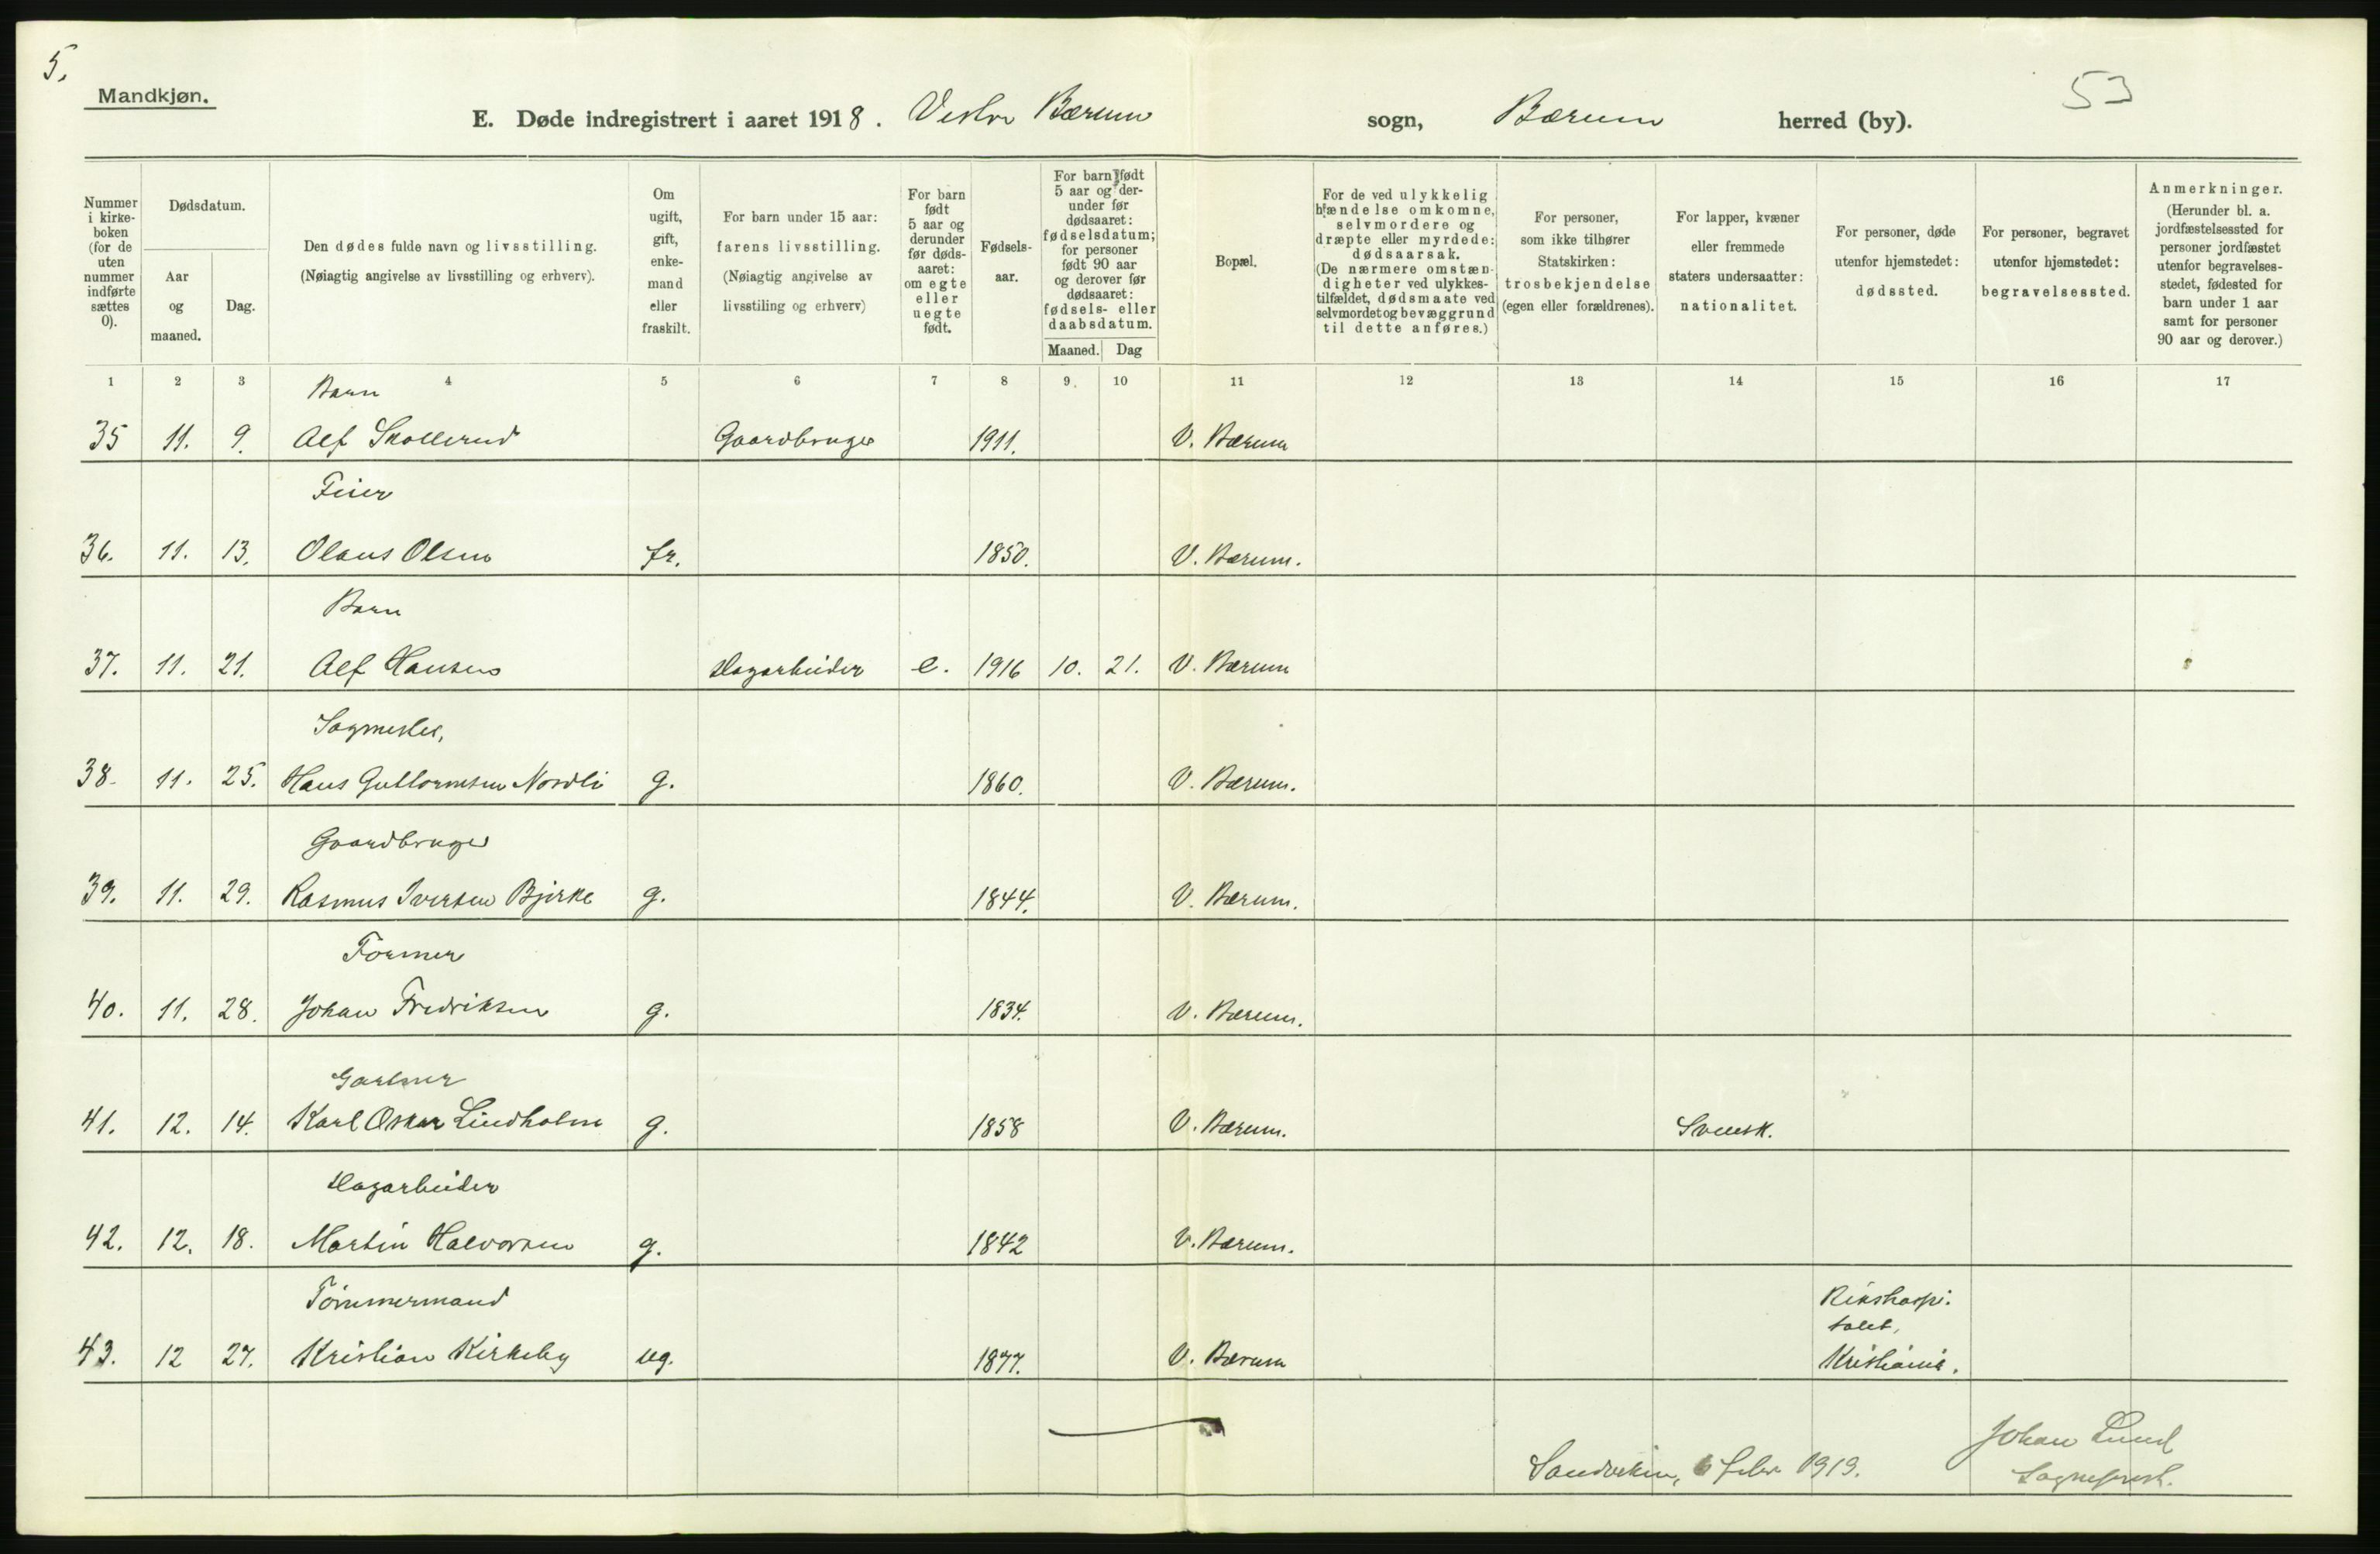 5.
Mandkjøn.
53
E. Døde indregistrert i aaret 1918. Vestre Bærum sogn, Bærum herred (by).
Nummer i kirke- boken (for de uten nummer indførte sættes 0).
Dødsdatum.
Aar og maaned.
Dag.
Den dødes fulde navn og livsstilling.
(Nøiagtig angivelse av livsstilling og erhverv).
Om ugift, gift, enke- mand eller fraskilt.
For barn under 15 aar: farens livsstilling. (Nøiagtig angivelse av livsstiling og erhverv)
For barn født 5 aar og derunder før døds- aaret: om egte eller uegte født.
Fødsels- aar.
For barn født 5 aar og der- under før dødsaaret: fødselsdatum; for personer født 90 aar og derover før dødsaaret: fødsels- eller daabsdatum.
Maaned. Dag
Bopæl.
For de ved ulykkelig hændelse omkomne, selvmordere og dræpte eller myrdede: dødsaarsak. (De nærmere omstæn- digheter ved ulykkes- tilfældet, dødsmaate ved selvmordet og bevæggrund til dette anføres.)
For personer, som ikke tilhører Statskirken: trosbekjendelse (egen eller forældrenes).
For lapper, kvæner eller fremmede staters undersaatter: nationalitet.
For personer, døde utenfor hjemstedet: dødssted.
For personer, begravet utenfor hjemstedet: begravelsessted.
Anmerkninger. (Herunder bl. a. jordfæstelsessted for personer jordfæstet utenfor begravelses- stedet, fødested for barn under 1 aar samt for personer 90 aar og derover.)
1 2 3 4 5 6 7 8 9. 10 11 12 13 14 15 16 17
Barn
35 11. 9. Alf Skollerud Gaardbruger 1911. V. Bærum
Feier
36. 11. 13. Olaus Olsen fr. 1850. V. Bærum.
Barn
37. 11. 21. Alf Hansen Dagarbeider e. 1916 10. 21. V. Bærum
Sagmester,
38. 11. 25. Hans Guttormsen Nordli g. 1860. V. Bærum.
Gaardbruger
39. 11. 29. Rasmus Iversen Bjerke g. 1844. V. Bærum.
Former
40. 11. 28. Johan Fredriksen g. 1834. V. Bærum.
Gartner
41. 12. 14. Karl Oskar Lindholm g. 1858 V. Bærum. Svensk.
Dagarbeider
42. 12. 18. Martin Halvorsen g. 1842 V. Bærum.
Tömmermand Rikshospi-
talet,
43. 12 27. Kristian Kirkeby ug. 1877. V. Bærum Kristiania.
Johan Lund
Sandviken, 6 febr 1919.
Sogneprest.